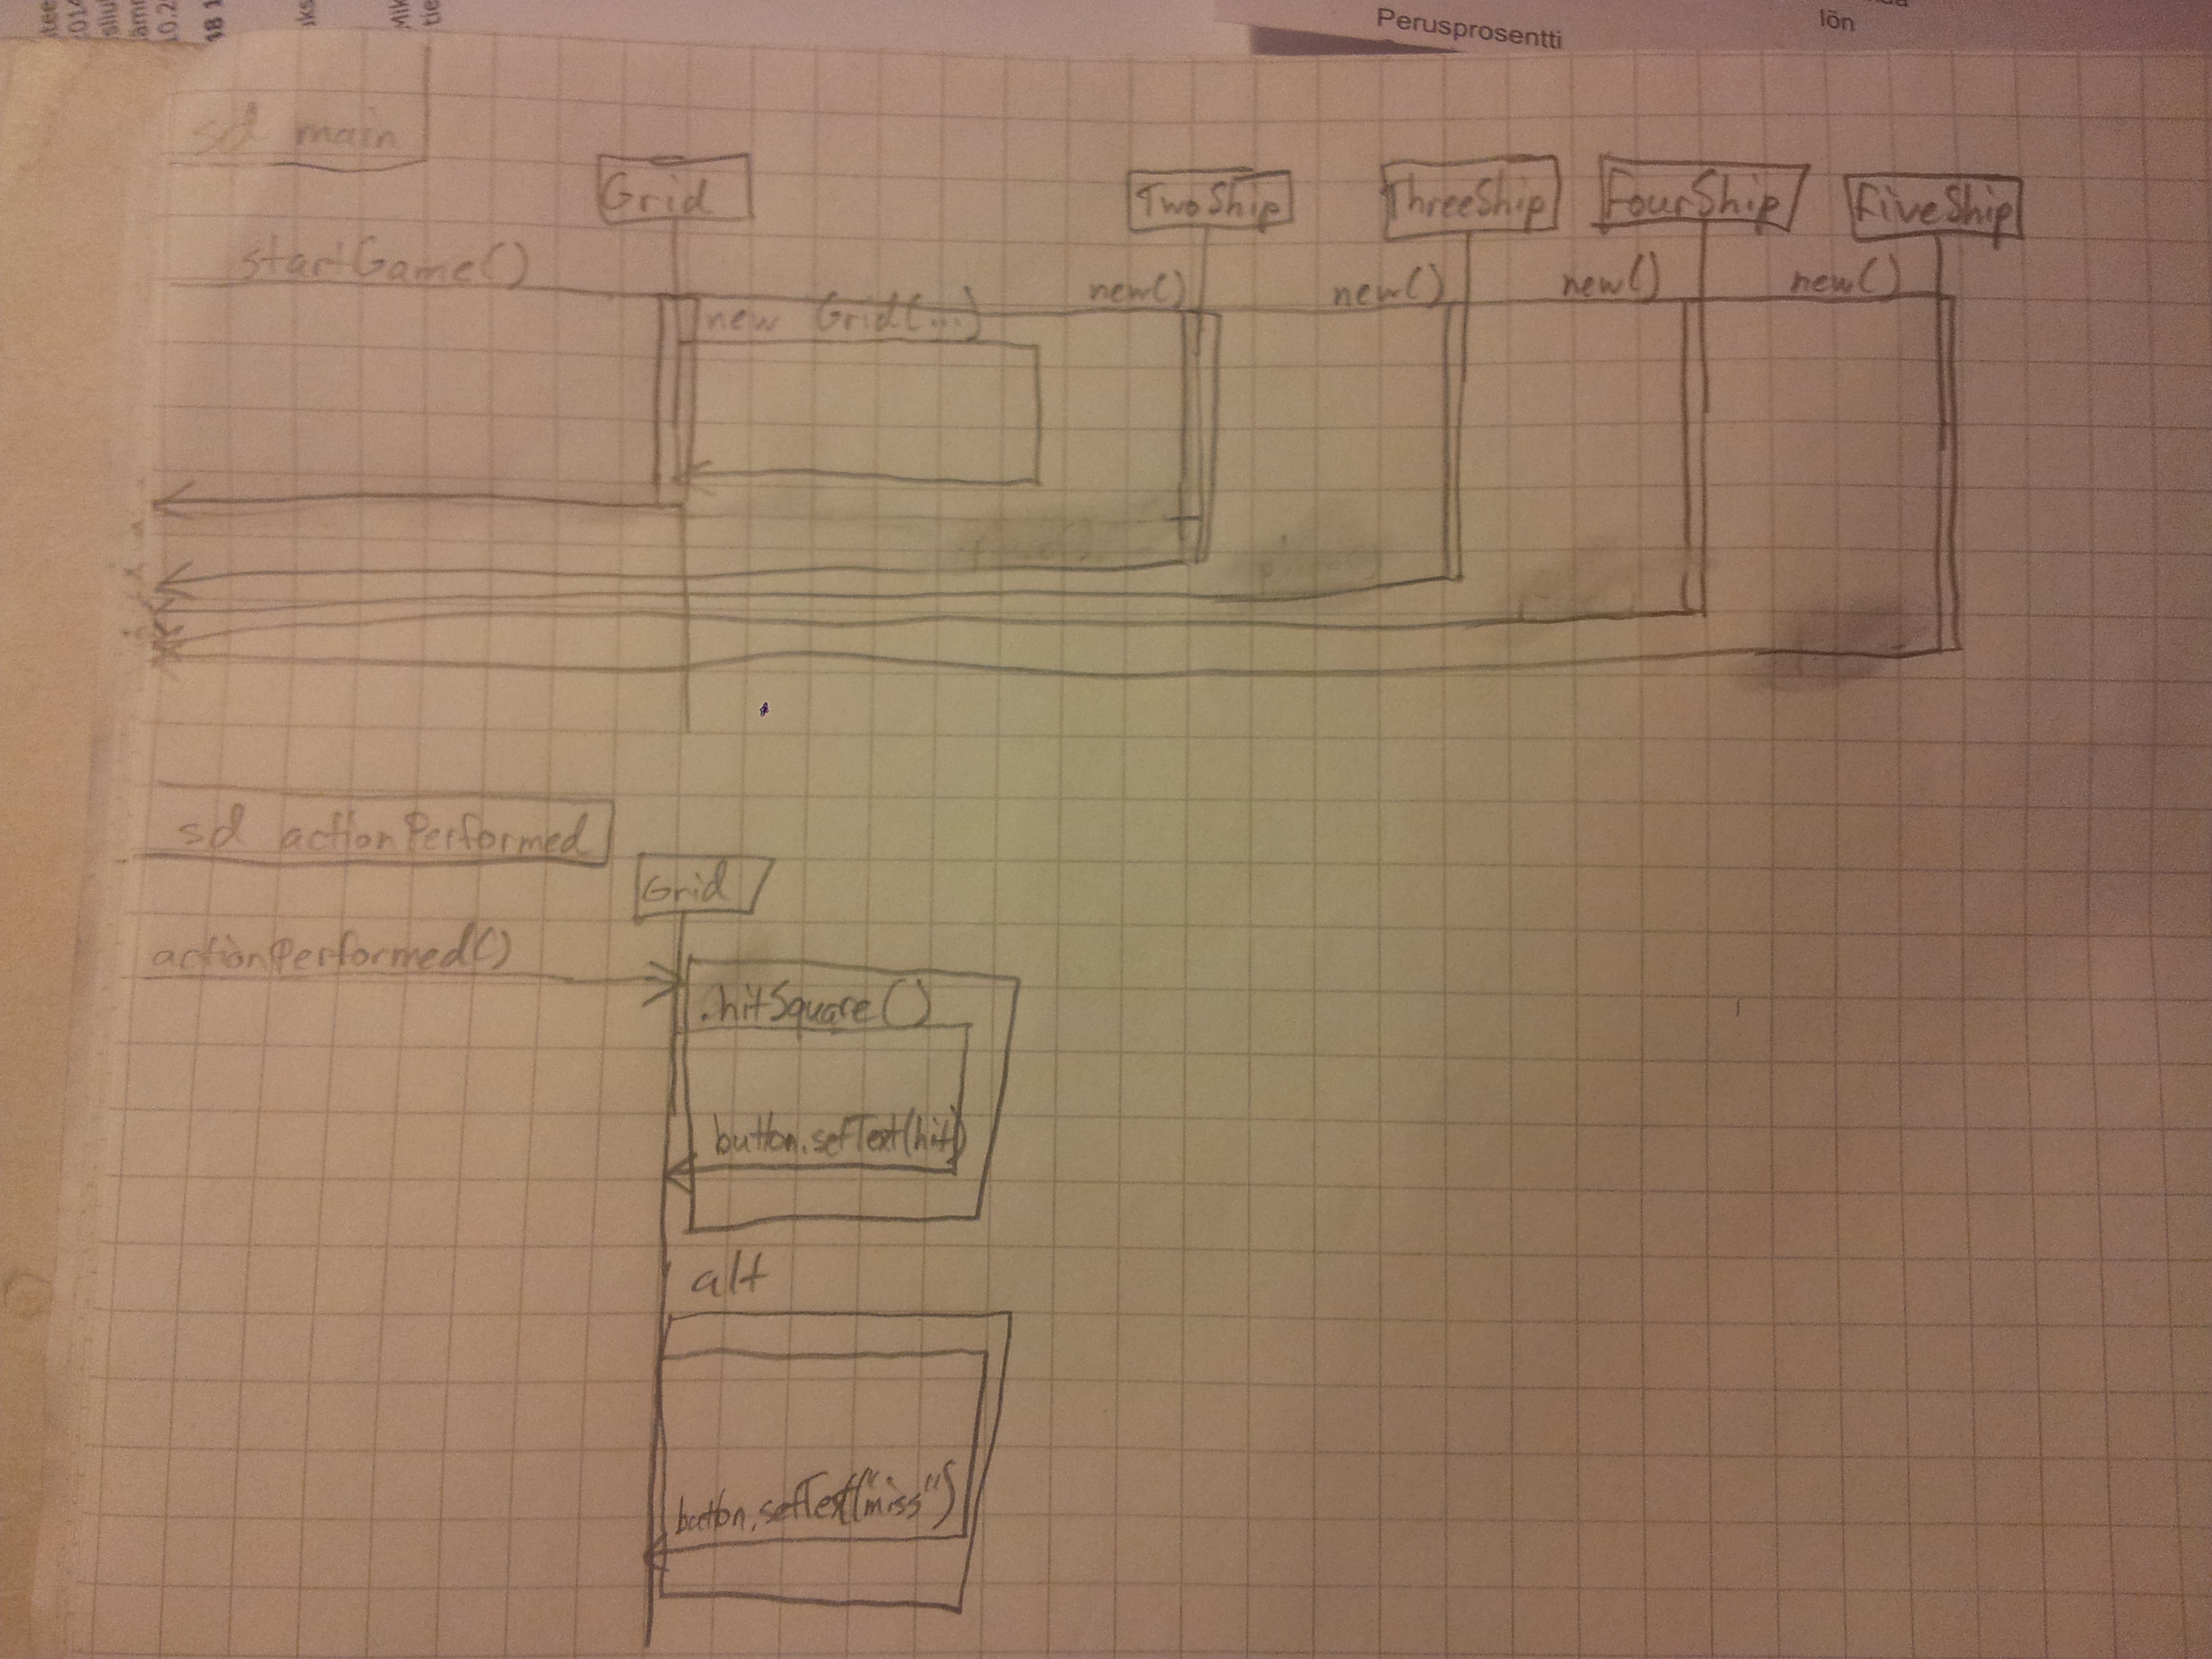 Perusprosentti
lön
sd main
Grid
TwoShip
ThreeShip
FourShip
FiveShip
startGame()
new()
new()
new()
new()
new Grid(...)
sd actionPerformed
Grid
actionPerformed()
.hitSquare()
button.setText(hit)
alt
button.setText("miss")